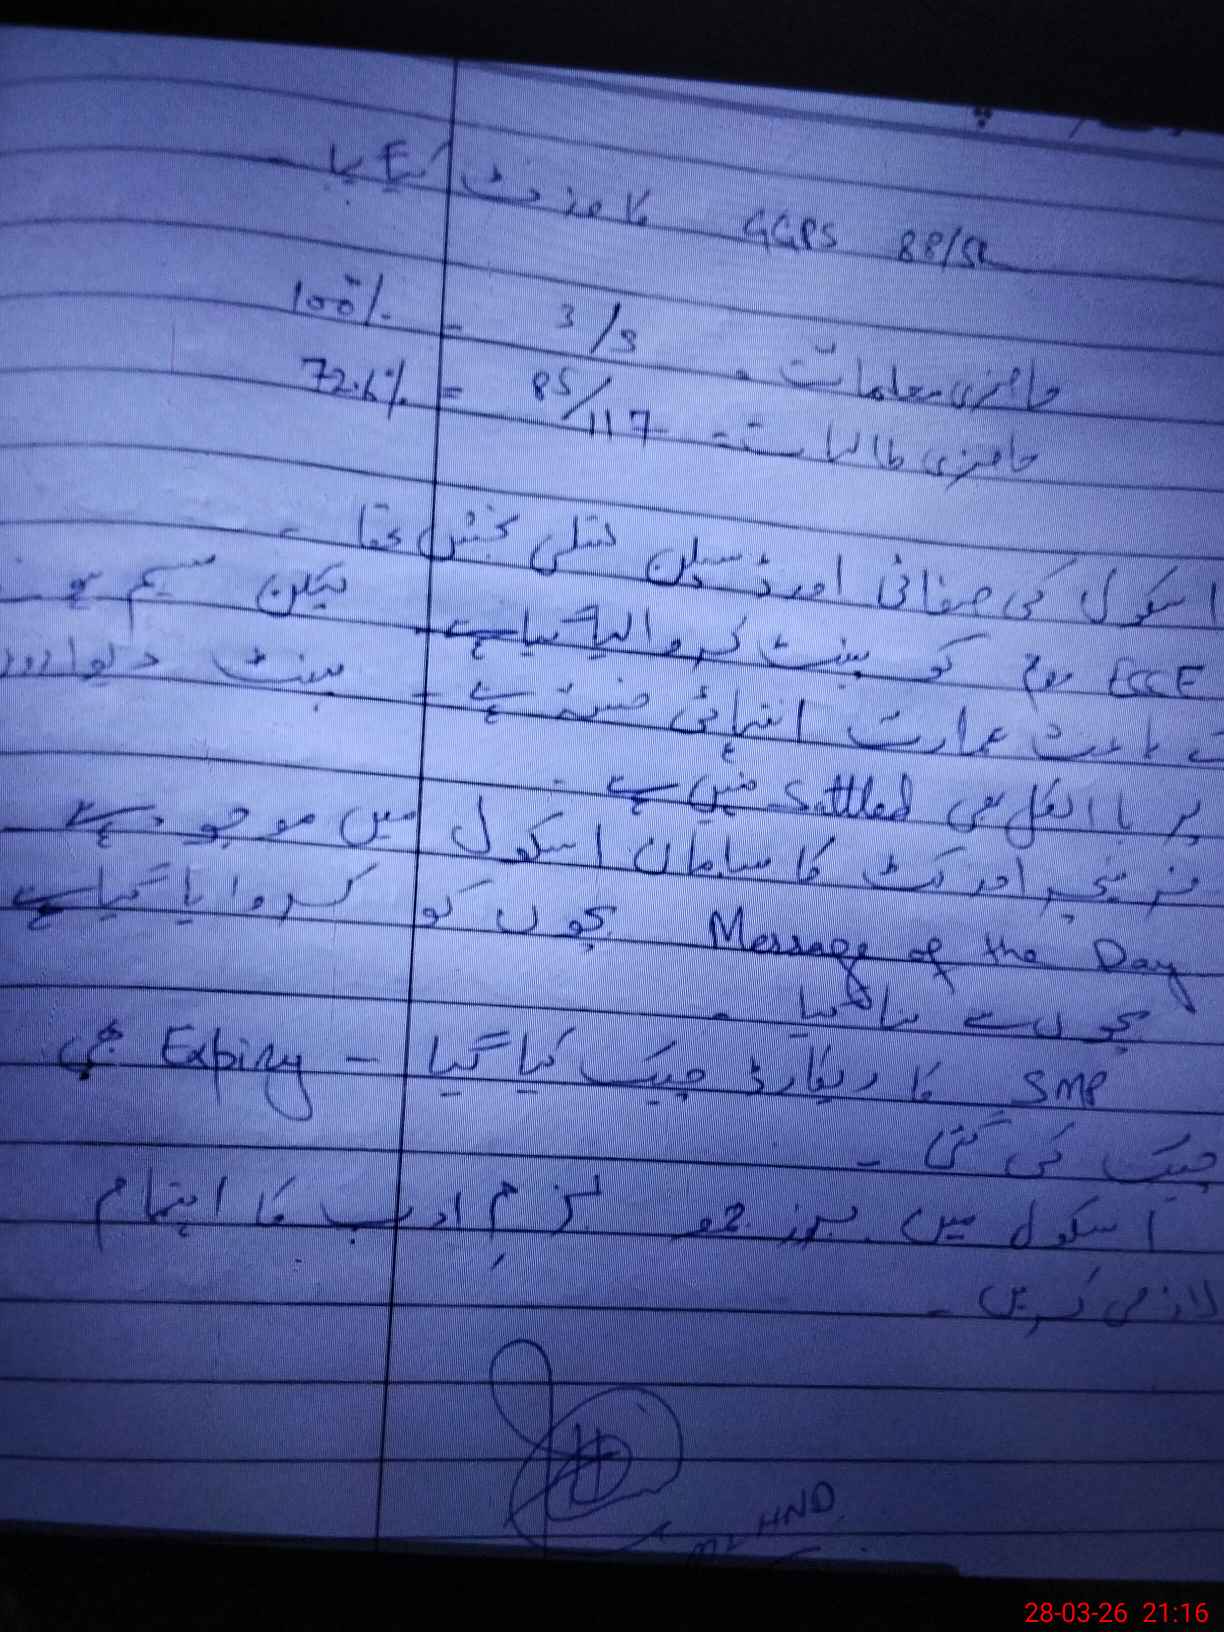 GGPS 88/SL کا وزٹ کیا گیا
حاضری معلمات - 3/3 = 100%
حاضری طالبات - 85/117 = 72.6%
اسکول کی صفائی اور ڈسپلن تسلی بخش تھا -
ECCE روم کو پینٹ کروالیا گیا ہے لیکن سیم
کے باعث عمارت انتہائی خستہ ہے - پینٹ دیواروں
پر بالکل بھی Settled نہیں ہے -
فرنیچر اور کٹ کا سامان اسکول میں موجود ہے
Message of the Day بچوں کو کروایا گیا ہے
بچوں سے سنا گیا -
SMP کا ریکارڈ چیک کیا گیا - Expiry بھی
چیک کی گئی -
اسکول میں بروز بزم ادب کا اہتمام
لازمی کریں -
HND
28-03-26 21:16